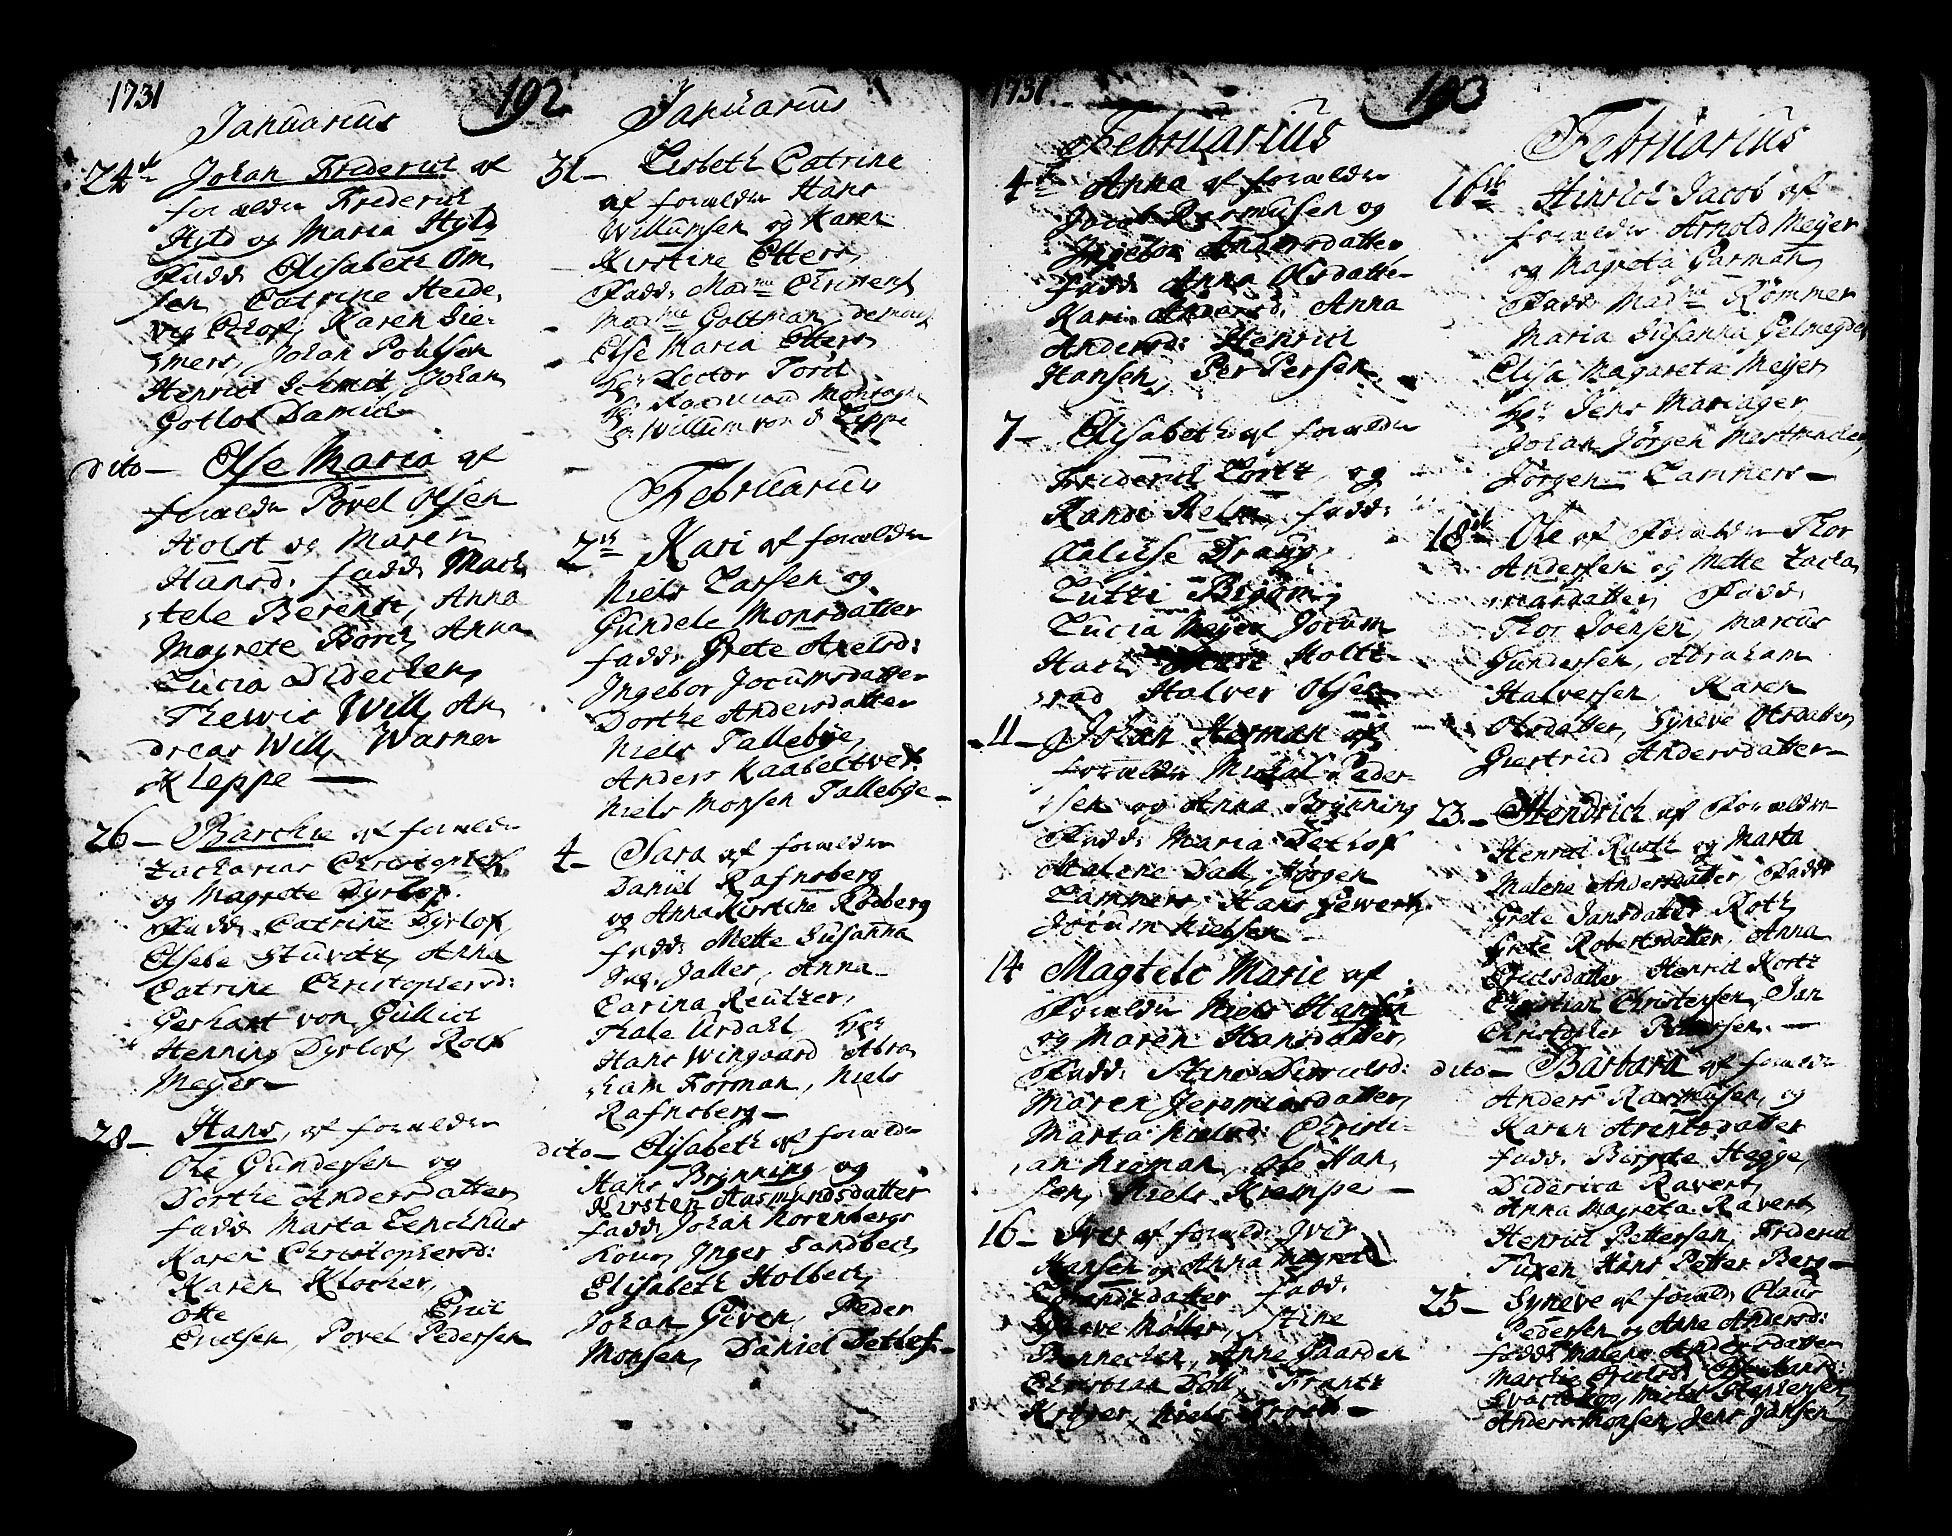 1731
192
Januarius
24de Johan Friderich af
forældre Friderich
Hyld og Maria Hyld
Fadd: Elisabeth Om
sen, Catrine Heide
vig Ethof, Karen Sie
mers, Johan Poulsen
Henrich Schmit, Johan
Gotlob Damide
dito – Else Maria af
forældre Povel Olsen
Holst og Maren
Hansd: fadd: Mach
tele Berentz, Anna
Magrete Borch, Anna
Lucia Didechen,
Thewis Will, An
dreas Will, Warner
Kleppe —
26 – Barchie af forældre
Zacharias Christopher
og Magrete Dyrlof.
Fadd: Catrine Dyrlof,
Elsebe Sturtz, Anna
Catrine Christophersd:
Gerhart von Gullich
Henning Dyrlof, Rolf
Meyer –
28 – Hans, af forældre
Ole Gundersen og
Dorthe Andersdatter
fadd: Marta Lenchhus
Karen Christophersd:
Karen Klocher,
Otte Erich
Erichsen, Povel Pedersen
Januarius
31 – Lisbeth Catrine
af forældre Hans
Willumsen og Karen
Kirstine Etters,
Fadd: Madme Christens
Madme Goltman, Demois
Else Maria Etters
Hr: Rector Ford
Hr: Rasmus Montagne
Hr: Willum von d Lippe
Februarius
2de Kari af forældre
Niels Lassen og
Gundele Monsdatter
fadd: Grete Axelsd:
Ingebor Jocumsdatter
Dorthe Andersdatter
Niels Tallebye,
Anders Kaabeltved
Niels Monsen Tallebye –
4 – Sara af forældre
Daniel Rafnsberg
og Anna Kirstine Rodberg
fadd: Mette Susanna
Jaller, Anna
Carina Reutzer,
Thale Urdahl Hr:
Hans Wingaard Abra
ham Forman, Niels
Rafnsberg –
dito – Elisabeth af forældre
Hans Brynning og
Kirsten Aasmundsdatter
fadd: Johan Norenbergs
Kone, Inger Sandbech
Elisabeth Holbech,
Johan Given, Peder
Monsen, Daniel Detlef –
1731
193
Februarius
4de Anna af forældre
Joch Rasmusen og
Ingebor Andersdatter
fadd: Anna Olsdatter
Kari Andersd: Anna
Andersd: Henrich
Hansen, Per Persen
7 – Elisabeth af forældre
Friderich Cortz, og
Randi Helm, fadd:
Aaluse Draug,
Lutzi Bigom,
Lucia Meyer, Jocum
Hach, Holtz
rad Halver Olsen
11 – Johan Herman af
forældre Michal Peder
sen og Anna Brynning
Fadd: Maria Detlof
Malene Dall, Jørgen
Lammers, Hans Gewerh
Jocum Nielsen –
14 Magtele Marie af
Forældre Niels Hansen
og Maren Hansdatter,
Fadd: Stine Diderichsd:
Maren Jeremiasdatter,
Marta Nielsd: Christi
an Nieman, Ole Han
sen, Niels Krempe –
16 – Iver af foræld: Iver
Hansen og Anna Magreta
fadd:
Møller, Stine
Bennechen, Anne Gaarden
Christian Doll, Frantz
Krøger, Niels Frost –
Februarius
16de Hinrich Jacob af
forældre Arnold Meyer
og Magreta Garman,
Fadd: Madme Rømmer
Maria Susanna Gelmeyden
Elisa Magareta Meyer
Hr: Jens Mariager
Johan Jørgen Mestmacher,
Jørgen Lammers –
18de Ole af Forældre Thor
Andersen og Mette Zacha
riasdatter, Fadd:
Thor Joensen, Marcus
Gundersen, Abraham
Halversen, Karen
Olsdatter, Syneve Olsdatter,
Giertrud Andersdatter –
23 – Hendrich af Forældre
Henrich Rusth og Marta
Malene Andersdatter, Fadd:
Grete Jansdatter Roth,
Grete Robertsdatter, Anna
Erichsdatter Henrich Kortz
Christian Christensen, Jan
Christopher Petersen. –
dito – Barbara af forældre
Anders Rasmusen, og
Karen Arentsdatter
fadd: Birgete Hegge,
Diderica Ravert,
Anna Magreta Ravert,
Henrich Pettersen, Friderich
Tuxen Hans Petter Berg –
25 – Syneve af foræld: Claus
Pedersen og Anne Andersd:
fadd: Malene Andersdatter
Marchie Erichsd:
Anders Monsen, Jens Jansen